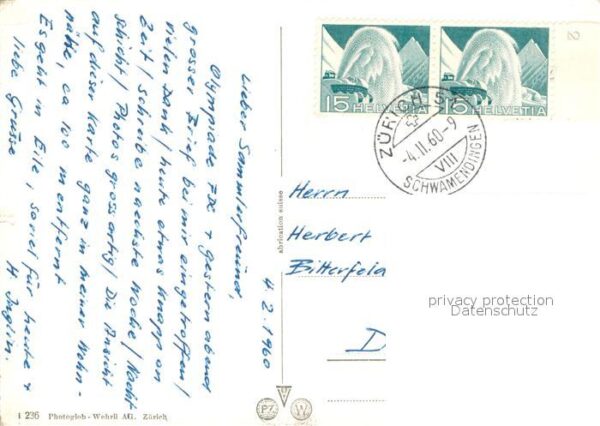 4.2.1960
Lieber Sammlerfreund,
Olympiade FDC + gestern abend
grosser Brief bei mir eingetroffen/
vielen Dank/ heute etwas knapp an
Zeit/ schreibe nächste Woche/ Nacht
schicht/ Photos grossartig/ Die Ansicht
auf dieser Karte ganz in meiner Wohn-
nähe, ca 100 m entfernt
Es geht in Eile, soviel für heute +
liebe Grüsse
H
15 HELVETIA
15 HELVETIA
2
ZÜRICH
-4.II.60-9
VIII
SCHWAMENDINGEN
Herrn
Herbert
Bitterfeld
D
privacy protection
Datenschutz
abrication suisse
PZ W
1 236 Photoglob-Wehrli AG. Zürich